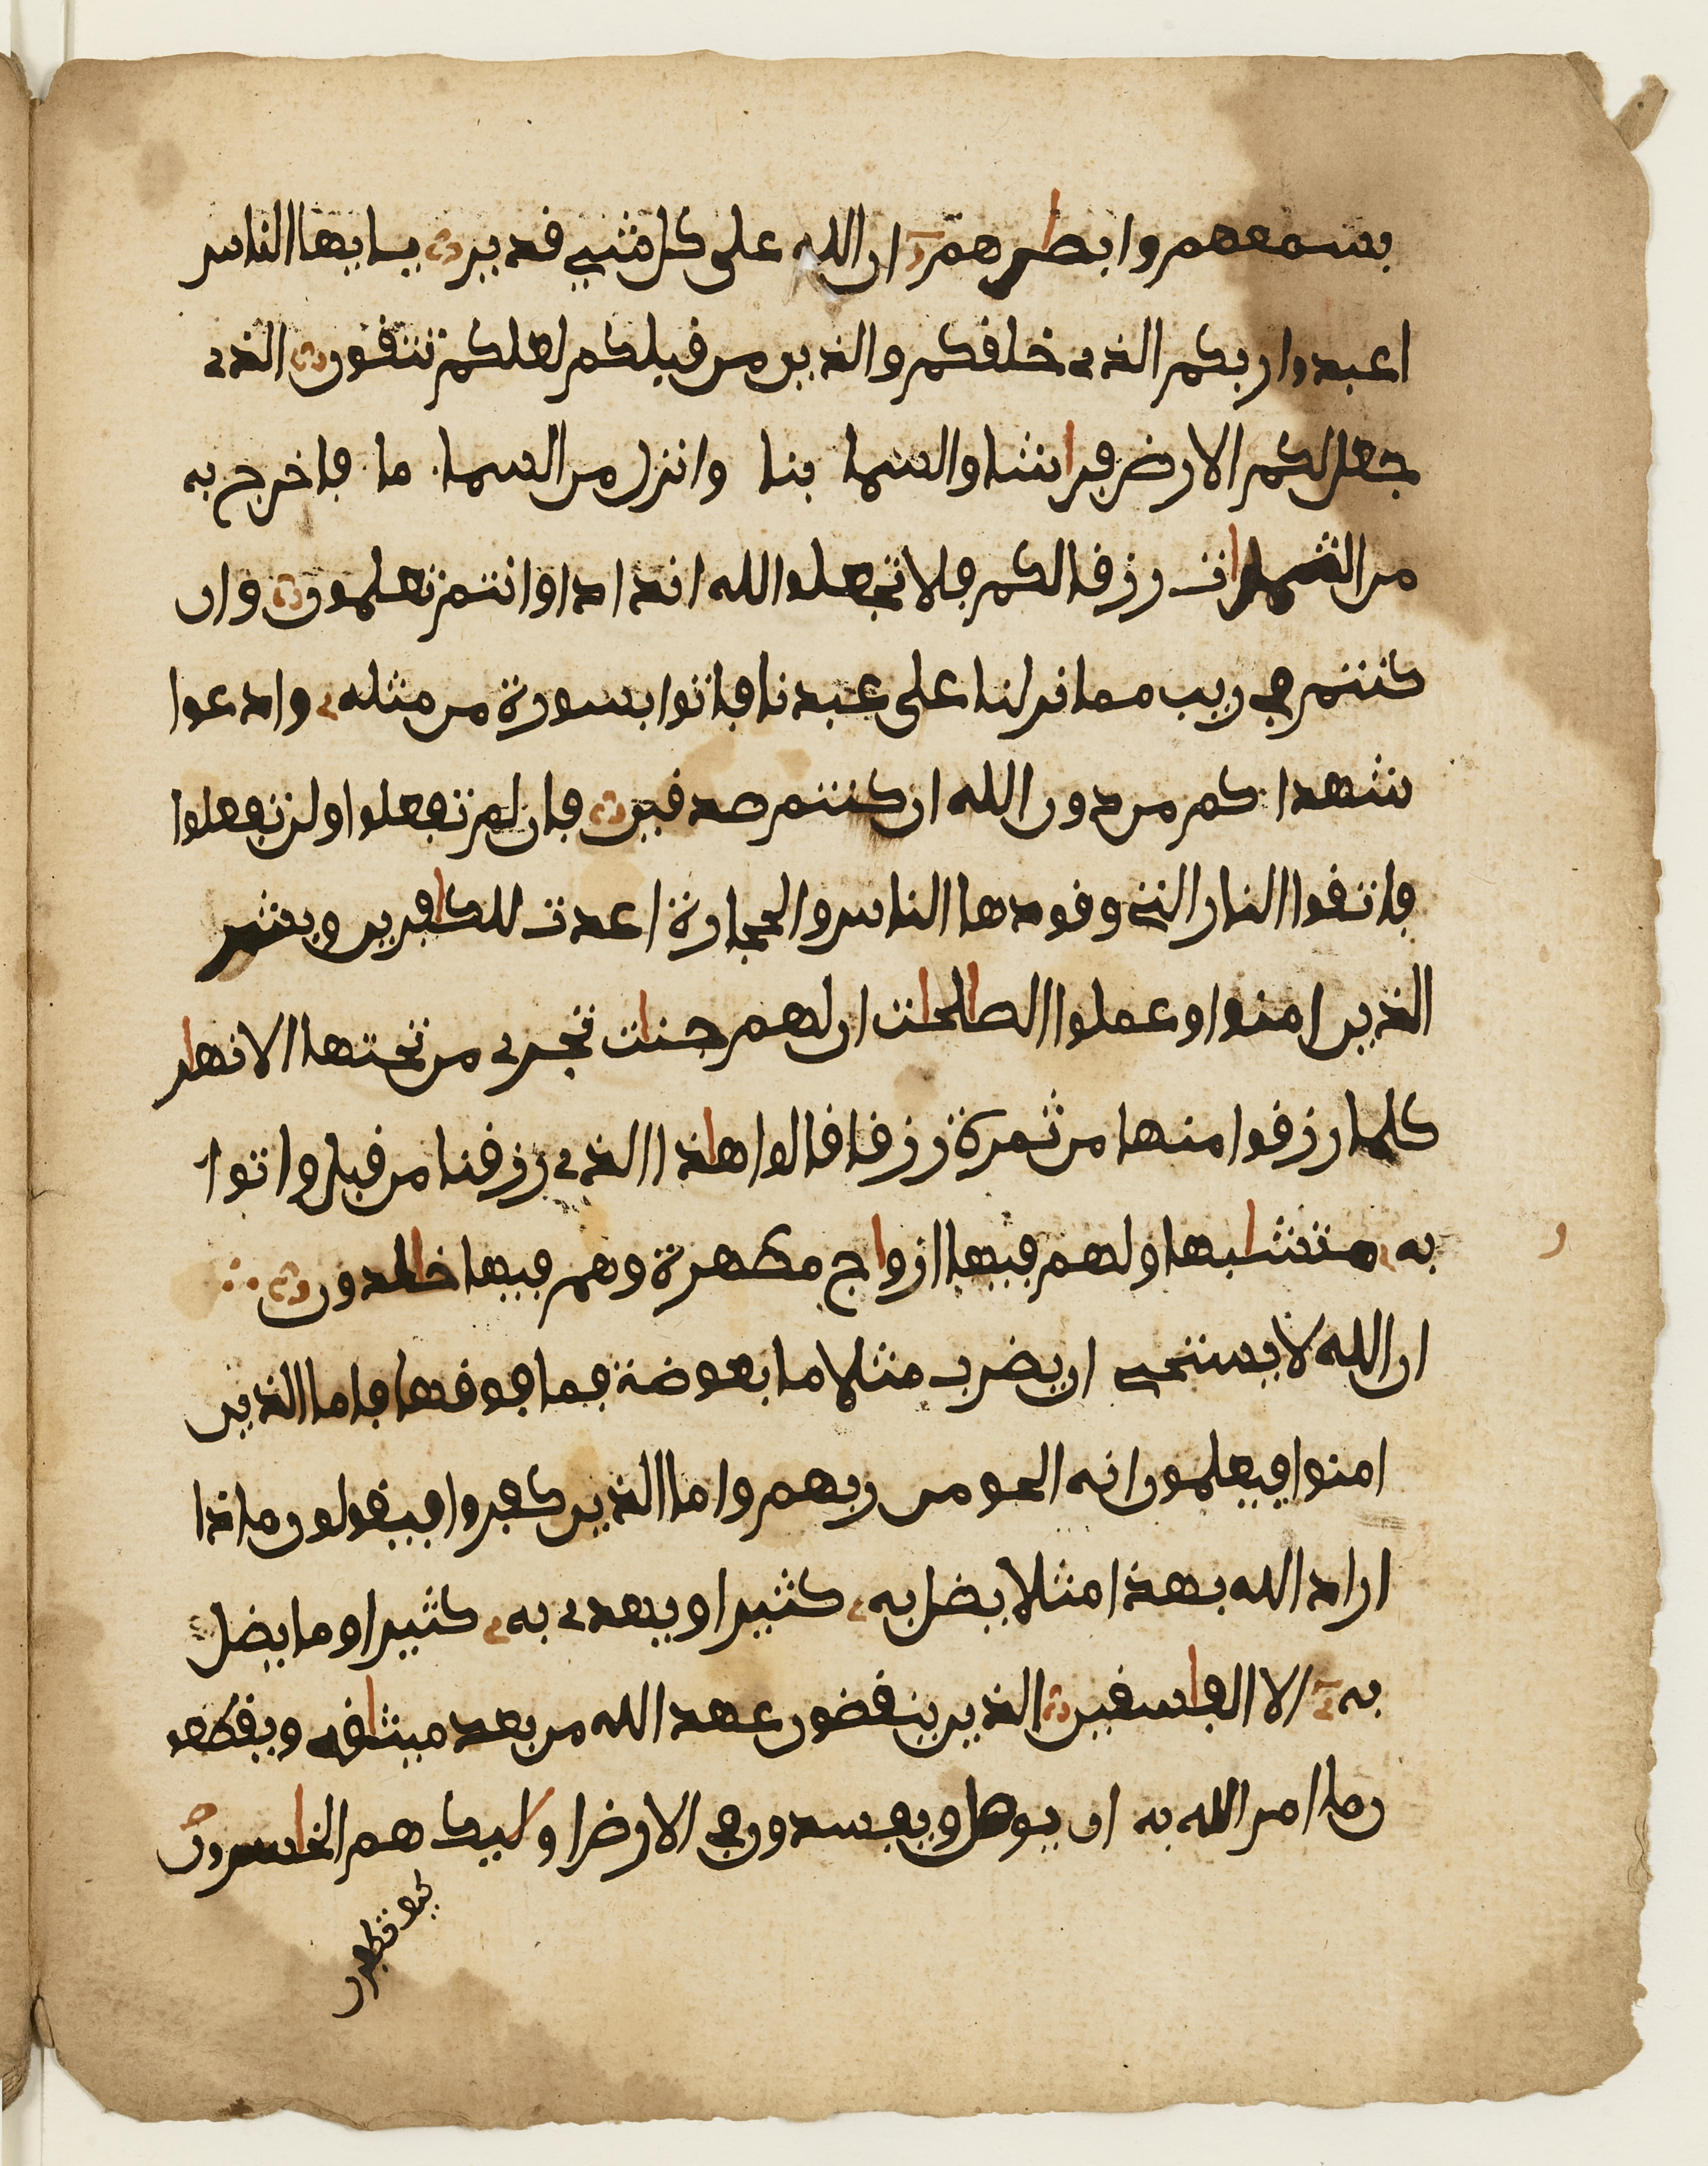 بسمعهم وابصارهم ان الله على كل شيء قدير يايها الناس
اعبدوا ربكم الذي خلقكم والذين من قبلكم لعلكم تتقون الذي
جعل لكم الارض فراشا والسما بنا وانزل من السما ما فاخرج به
من الثمرات رزقا لكم فلا تجعلوا لله اندادا وانتم تعلمون وان
كنتم في ريب مما نزلنا على عبدنا فاتوا بسورة من مثله وادعوا
شهداكم من دون الله ان كنتم صدقين فان لم تفعلوا ولن تفعلوا
فاتقوا النار التي وقودها الناس والحجارة اعدت للكافرين وبشر
الذين امنوا وعملوا الصالحات ان لهم جنات تجري من تحتها الانهار
كلما رزقوا منها من ثمرة رزقا قالوا هاذا الذي رزقنا من قبل واتوا
به متشابها ولهم فيها ازواج مطهرة وهم فيها خالدون
ان الله لا يستحي ان يضرب مثلا ما بعوضة فما فوقها فاما الذين
امنوا فيعلمون انه الحق من ربهم واما الذين كفروا فيقولون ماذا
اراد الله بهذا مثلا يضل به كثيرا ويهدي به كثيرا وما يضل
به الا الفاسقين الذين ينقضون عهد الله من بعد ميثاقه ويقطعو
ن ما امر الله به ان يوصل ويفسدون في الارض اوليك هم الخاسرون